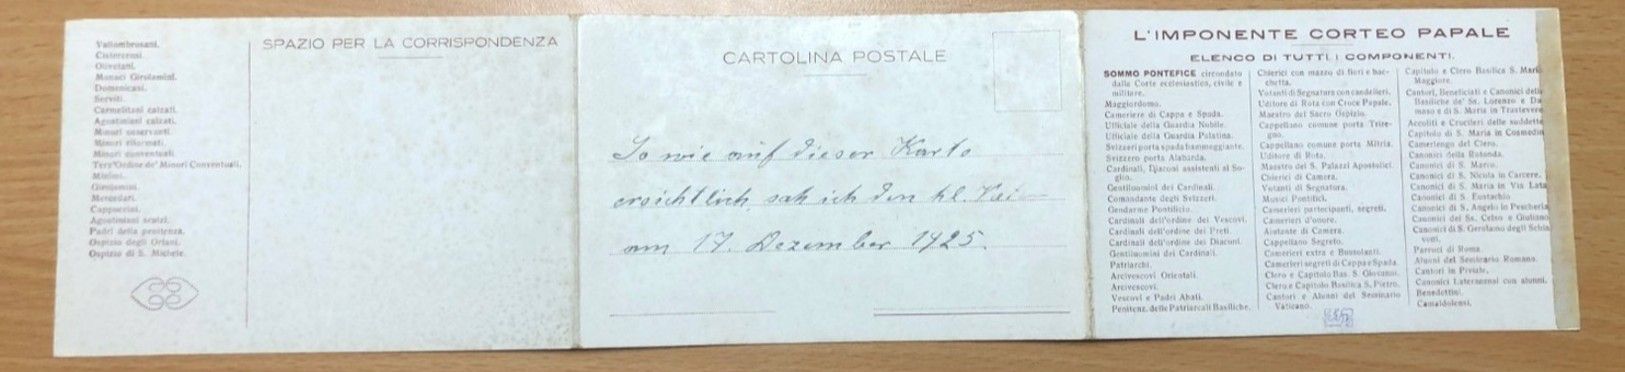 Vallombrosani.
Cistercensi.
Olivetani.
Monaci Girolamini.
Domenicani.
Serviti.
Carmelitani calzati.
Agostiniani calzati.
Minori osservanti.
Minori riformati.
Minori conventuali.
Terz'Ordine de' Minori Conventuali.
Minimi.
Girolamini.
Mercedari.
Cappuccini.
Agostiniani scalzi.
Padri della penitenza.
Ospizio degli Orfani.
Ospizio di S. Michele.
SPAZIO PER LA CORRISPONDENZA
CARTOLINA POSTALE
So wie auf dieser Karte
ersichtlich sah ich den hl.
am 17. Dezember 1925.
L'IMPONENTE CORTEO PAPALE
ELENCO DI TUTTI I COMPONENTI.
SOMMO PONTEFICE circondato
dalla Corte ecclesiastica, civile e
militare.
Maggiordomo.
Cameriere di Cappa e Spada.
Ufficiale della Guardia Nobile.
Ufficiale della Guardia Palatina.
Svizzeri porta spada fiammeggiante.
Svizzero porta Alabarda.
Cardinali, Diaconi assistenti al So-
glio.
Gentiluomini dei Cardinali.
Comandante degli Svizzeri.
Gendarme Pontificio.
Cardinali dell'ordine dei Vescovi.
Cardinali dell'ordine dei Preti.
Cardinali dell'ordine dei Diaconi.
Gentiluomini dei Cardinali.
Patriarchi.
Arcivescovi Orientali.
Arcivescovi.
Vescovi e Padri Abati.
Penitenz. delle Patriarcali Basiliche.
Chierici con mazzo di fiori e bac-
chetta.
Votanti di Segnatura con candelieri.
Uditore di Rota con Croce Papale.
Maestro del Sacro Ospizio.
Cappellano comune porta Trire-
gno.
Cappellano comune porta Mitria.
Uditore di Rota.
Maestro dei S. Palazzi Apostolici.
Chierici di Camera.
Votanti di Segnatura.
Musici Pontifici.
Camerieri partecipanti, segreti.
Camerieri d'onore.
Aiutante di Camera.
Cappellano Segreto.
Camerieri extra e Bussolanti.
Camerieri segreti di Cappa e Spada.
Clero e Capitolo Bas. S. Giovanni.
Clero e Capitolo Basilica S. Pietro.
Cantori e Alunni del Seminario
Vaticano.
Capitolo e Clero Basilica S. Maria
Maggiore.
Cantori, Beneficiati e Canonici delle
Basiliche de' Ss. Lorenzo e Da-
maso e di S. Maria in Trastevere
Accoliti e Cruciferi delle suddette
Capitolo di S. Maria in Cosmedin
Camerlengo del Clero.
Canonici della Rotonda.
Canonici di S. Marco.
Canonici di S. Nicola in Carcere.
Canonici di S. Maria in Via Lata
Canonici di S. Eustachio
Canonici di S. Angelo in Pescheria
Canonici dei Ss. Celso e Giuliano
Canonici di S. Gerolamo degli Schia-
voni.
Parroci di Roma.
Alunni del Seminario Romano.
Cantori in Piviale.
Canonici Lateranensi con alunni.
Benedettini.
Camaldolensi.